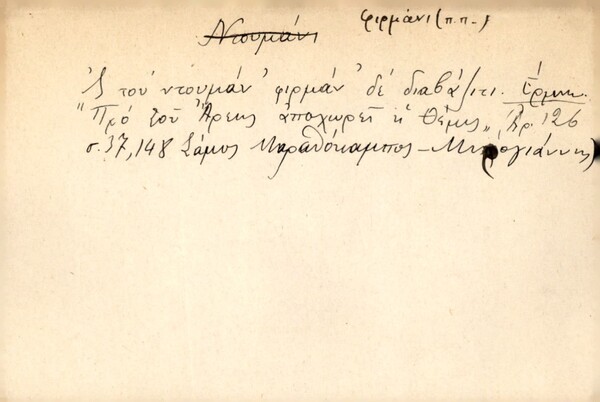 Ντουμάνι φιρμάνι (π.π.)
Σ τού ντουμάν' φιρμάν' δέ διαβάζιτι. Ἑρμην.
"Πρό τοῦ Ἄρεως ἀποχωρεῖ ἡ Θέμις", Ἀρ. 126
σ. 37, 148 Σάμος Μαραθόκαμπος -